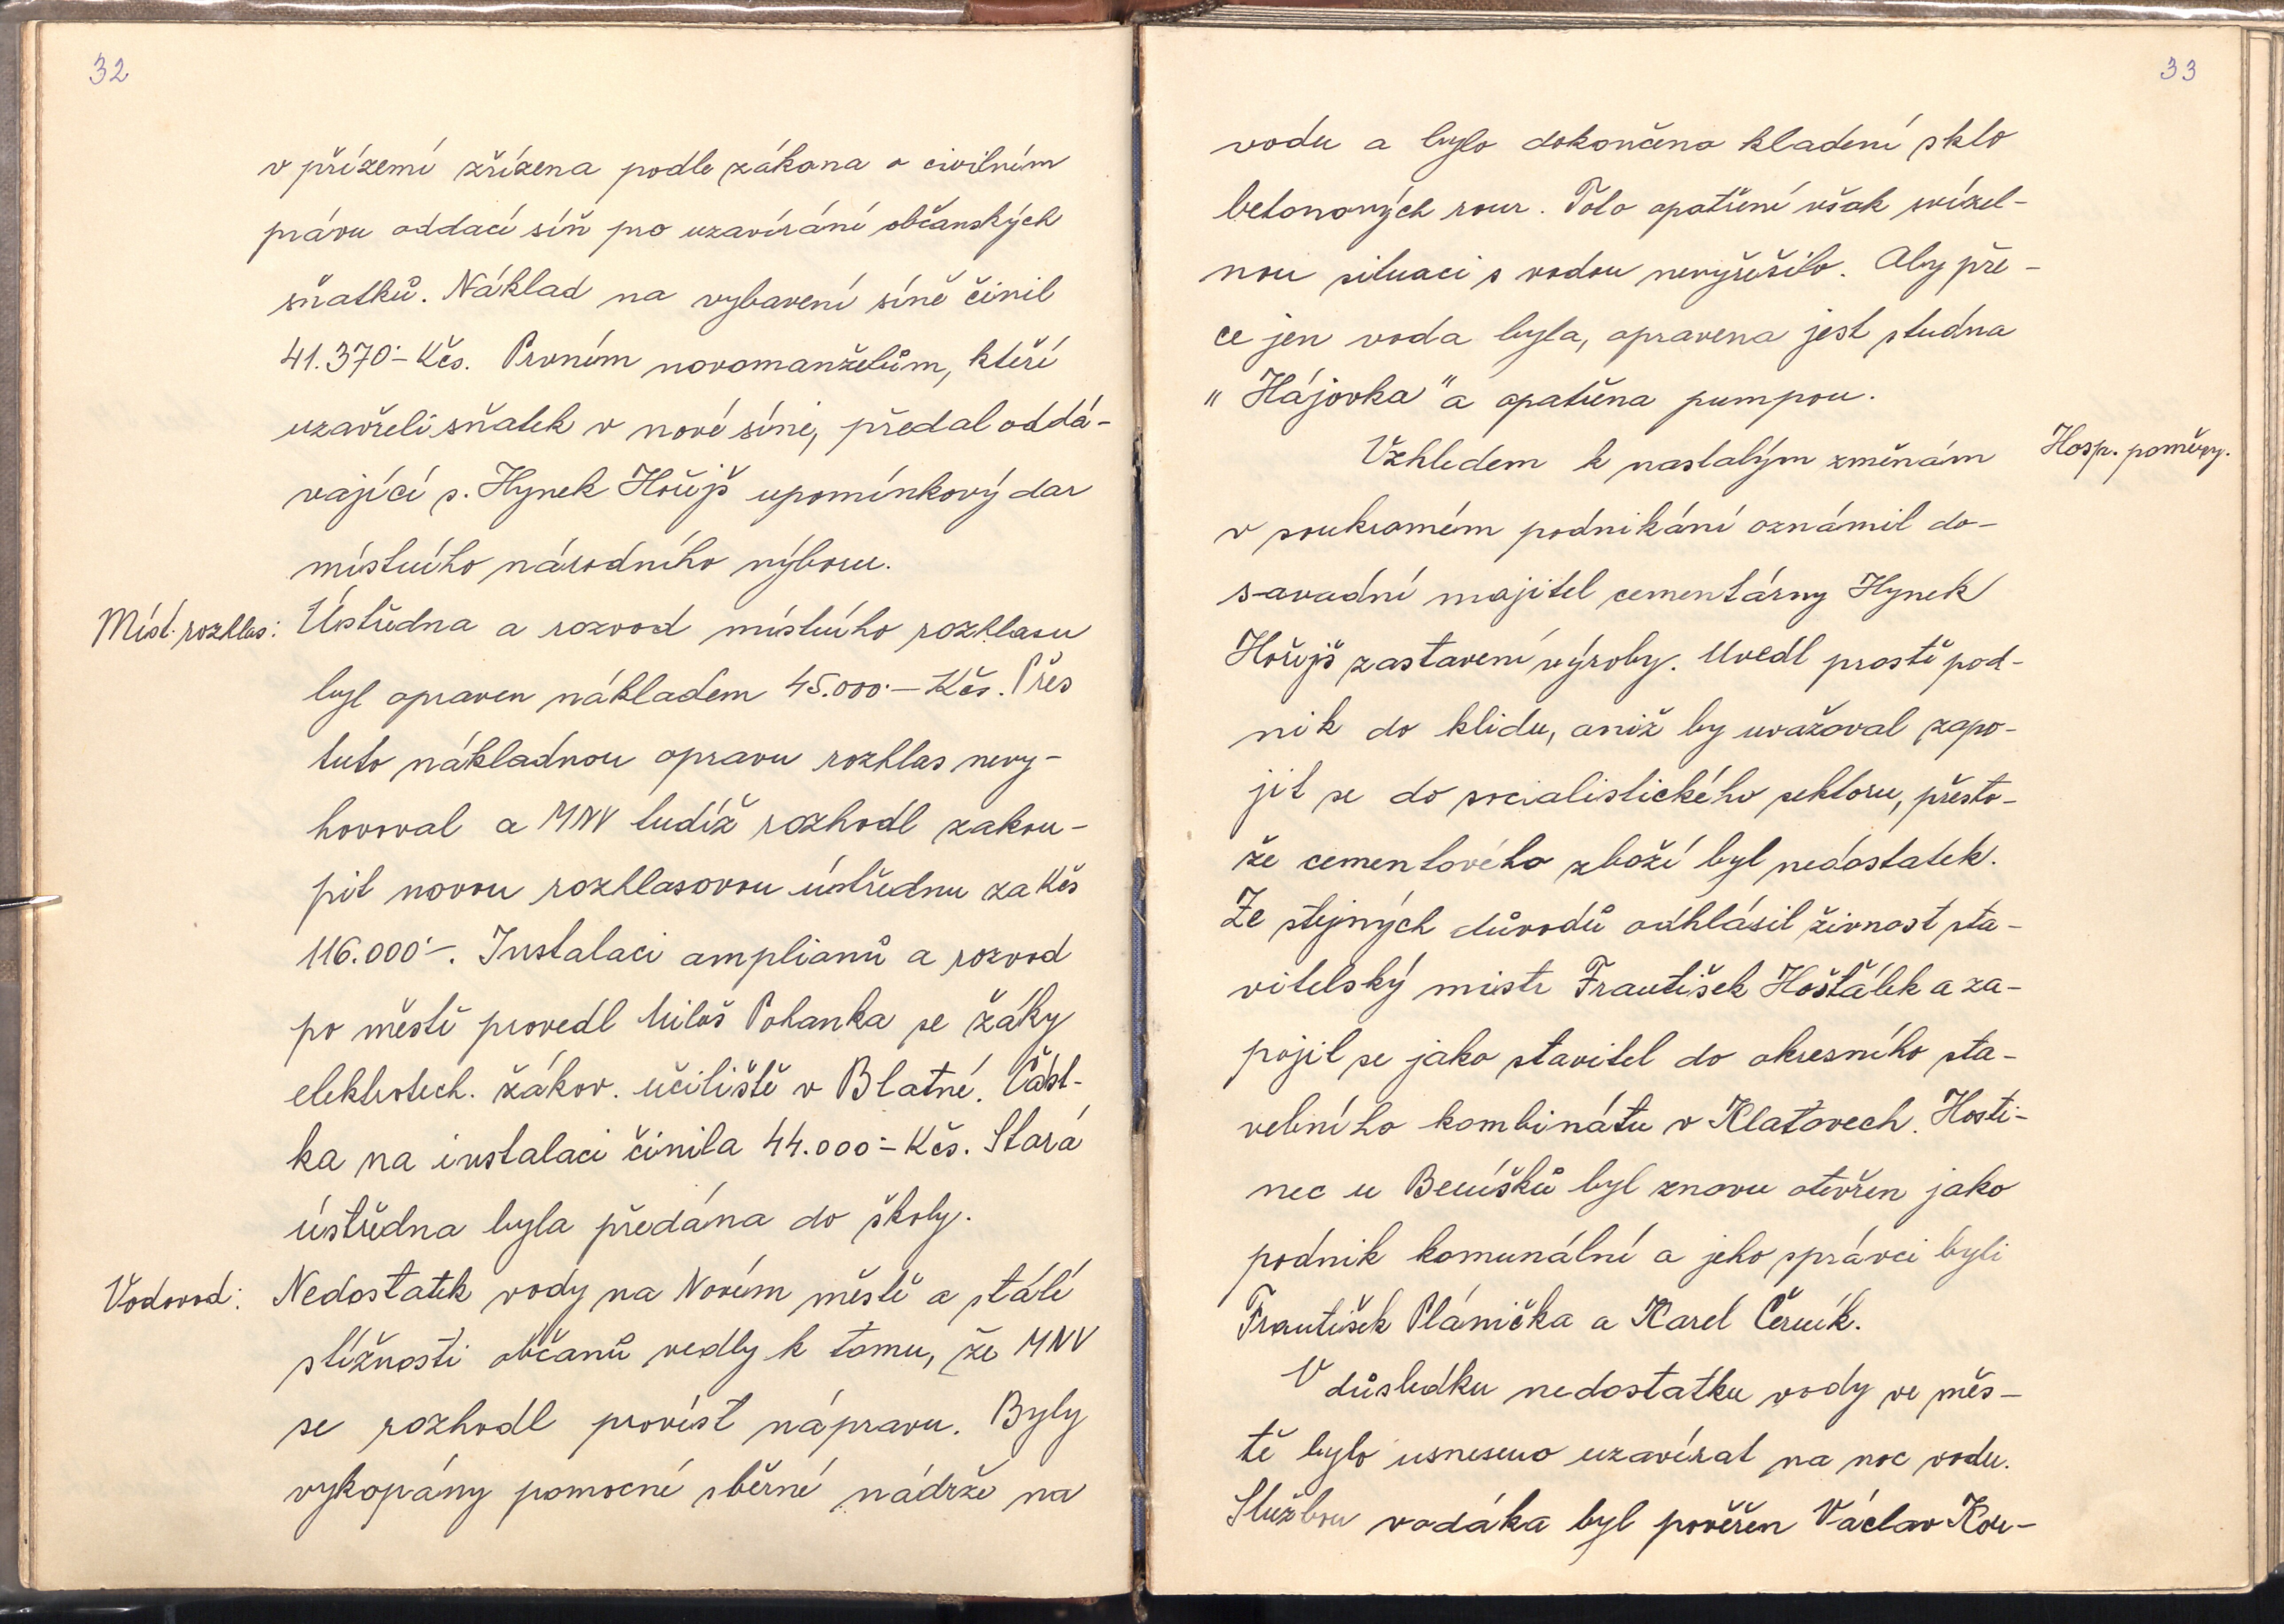 32
v přízemí zřízena podle zákona o civilním
právu oddací síň pro uzavírání občanských
sňatků. Náklad na vybavení síně činil
41.370·- Kčs. Prvním novomanželům, kteří
uzavřeli sňatek v nové síni, předal oddá-
vající s. Hynek Hořejš upomínkový dar
místního národního výboru.
Míst. rozhlas: Ústředna a rozvod místního rozhlasu
byl opraven nákladem 45.000·- Kčs. Přes
tuto nákladnou opravu rozhlas nevy-
hovoval a MNV tudíž rozhodl zakou-
pit novou rozhlasovou ústřednu za Kčs
116.000·-. Instalaci amplianů a rozvod
po městě provedl Miloš Pohanka se žáky
elektrotech. žákov. učiliště v Blatné. Část-
ka na instalaci činila 44.000·- Kčs. Stará
ústředna byla předána do školy.
Vodovod: Nedostatek vody na Novém městě a stálé
stížnosti občanů vedly k tomu, že MNV
se rozhodl provést nápravu. Byly
vykopány pomocné sběrné nádrže na
33
vodu a bylo dokončeno kladení sklo
betonových rour. Toto opatření však svízel-
nou situaci s vodou nevyřešilo. Aby pře-
ce jen voda byla, opravena jest studna
"Hájovka" a opatřena pumpou.
Vzhledem k nastalým změnám Hosp. poměry.
v soukromém podnikání oznámil do-
savadní majitel cementárny Hynek
Hořejš zastavení výroby. Uvedl prostě pod-
nik do klidu, aniž by uvažoval zapo-
jit se do socialistického sektoru, přesto-
že cementového zboží byl nedostatek.
Ze stejných důvodů odhlásil živnost sta-
vitelský mistr František Hošťálek a za-
pojil se jako stavitel do okresního sta-
vebního kombinátu v Klatovech. Hosti-
nec u Beníšků byl znovu otevřen jako
podnik komunální a jeho správci byli
František Plánička a Karel Černík.
V důsledku nedostatku vody ve měs-
tě bylo usneseno uzavírat na noc vodu.
Službou vodáka byl pověřen Václav Kou-